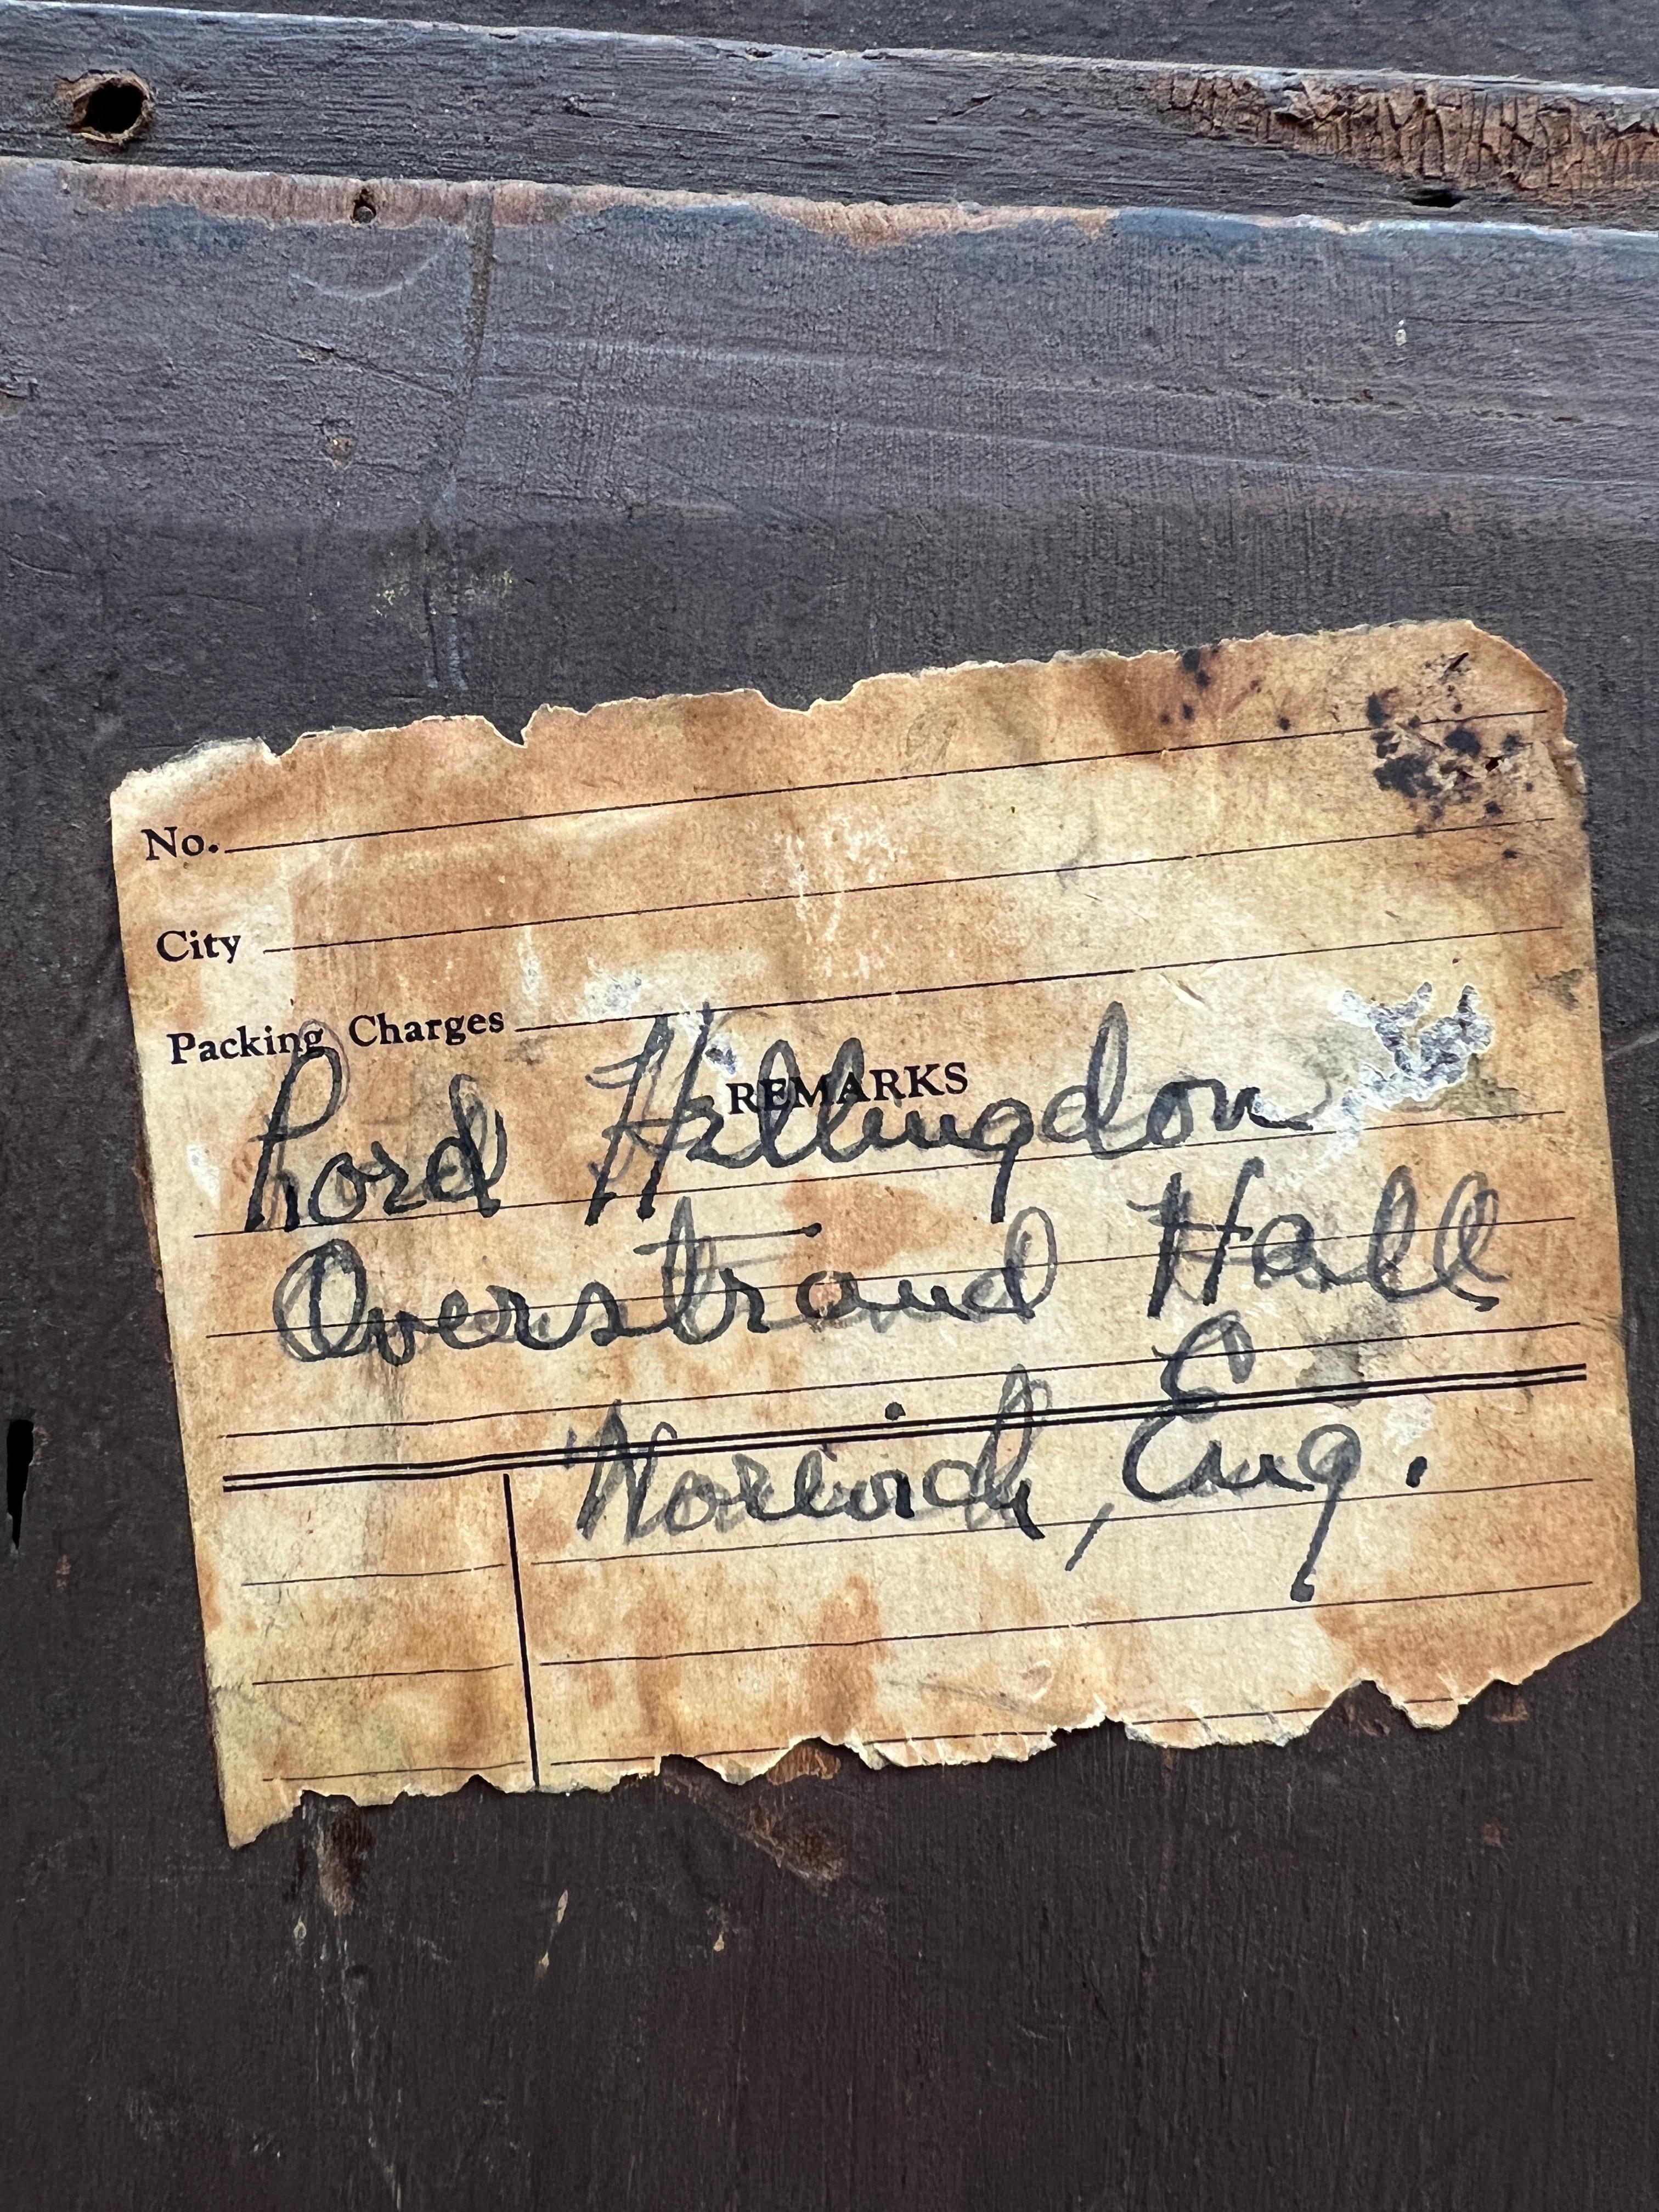 No.
City
Packing Charges
REMARKS
Lord Hillingdon
Overstrand Hall
Norwich, Eng.